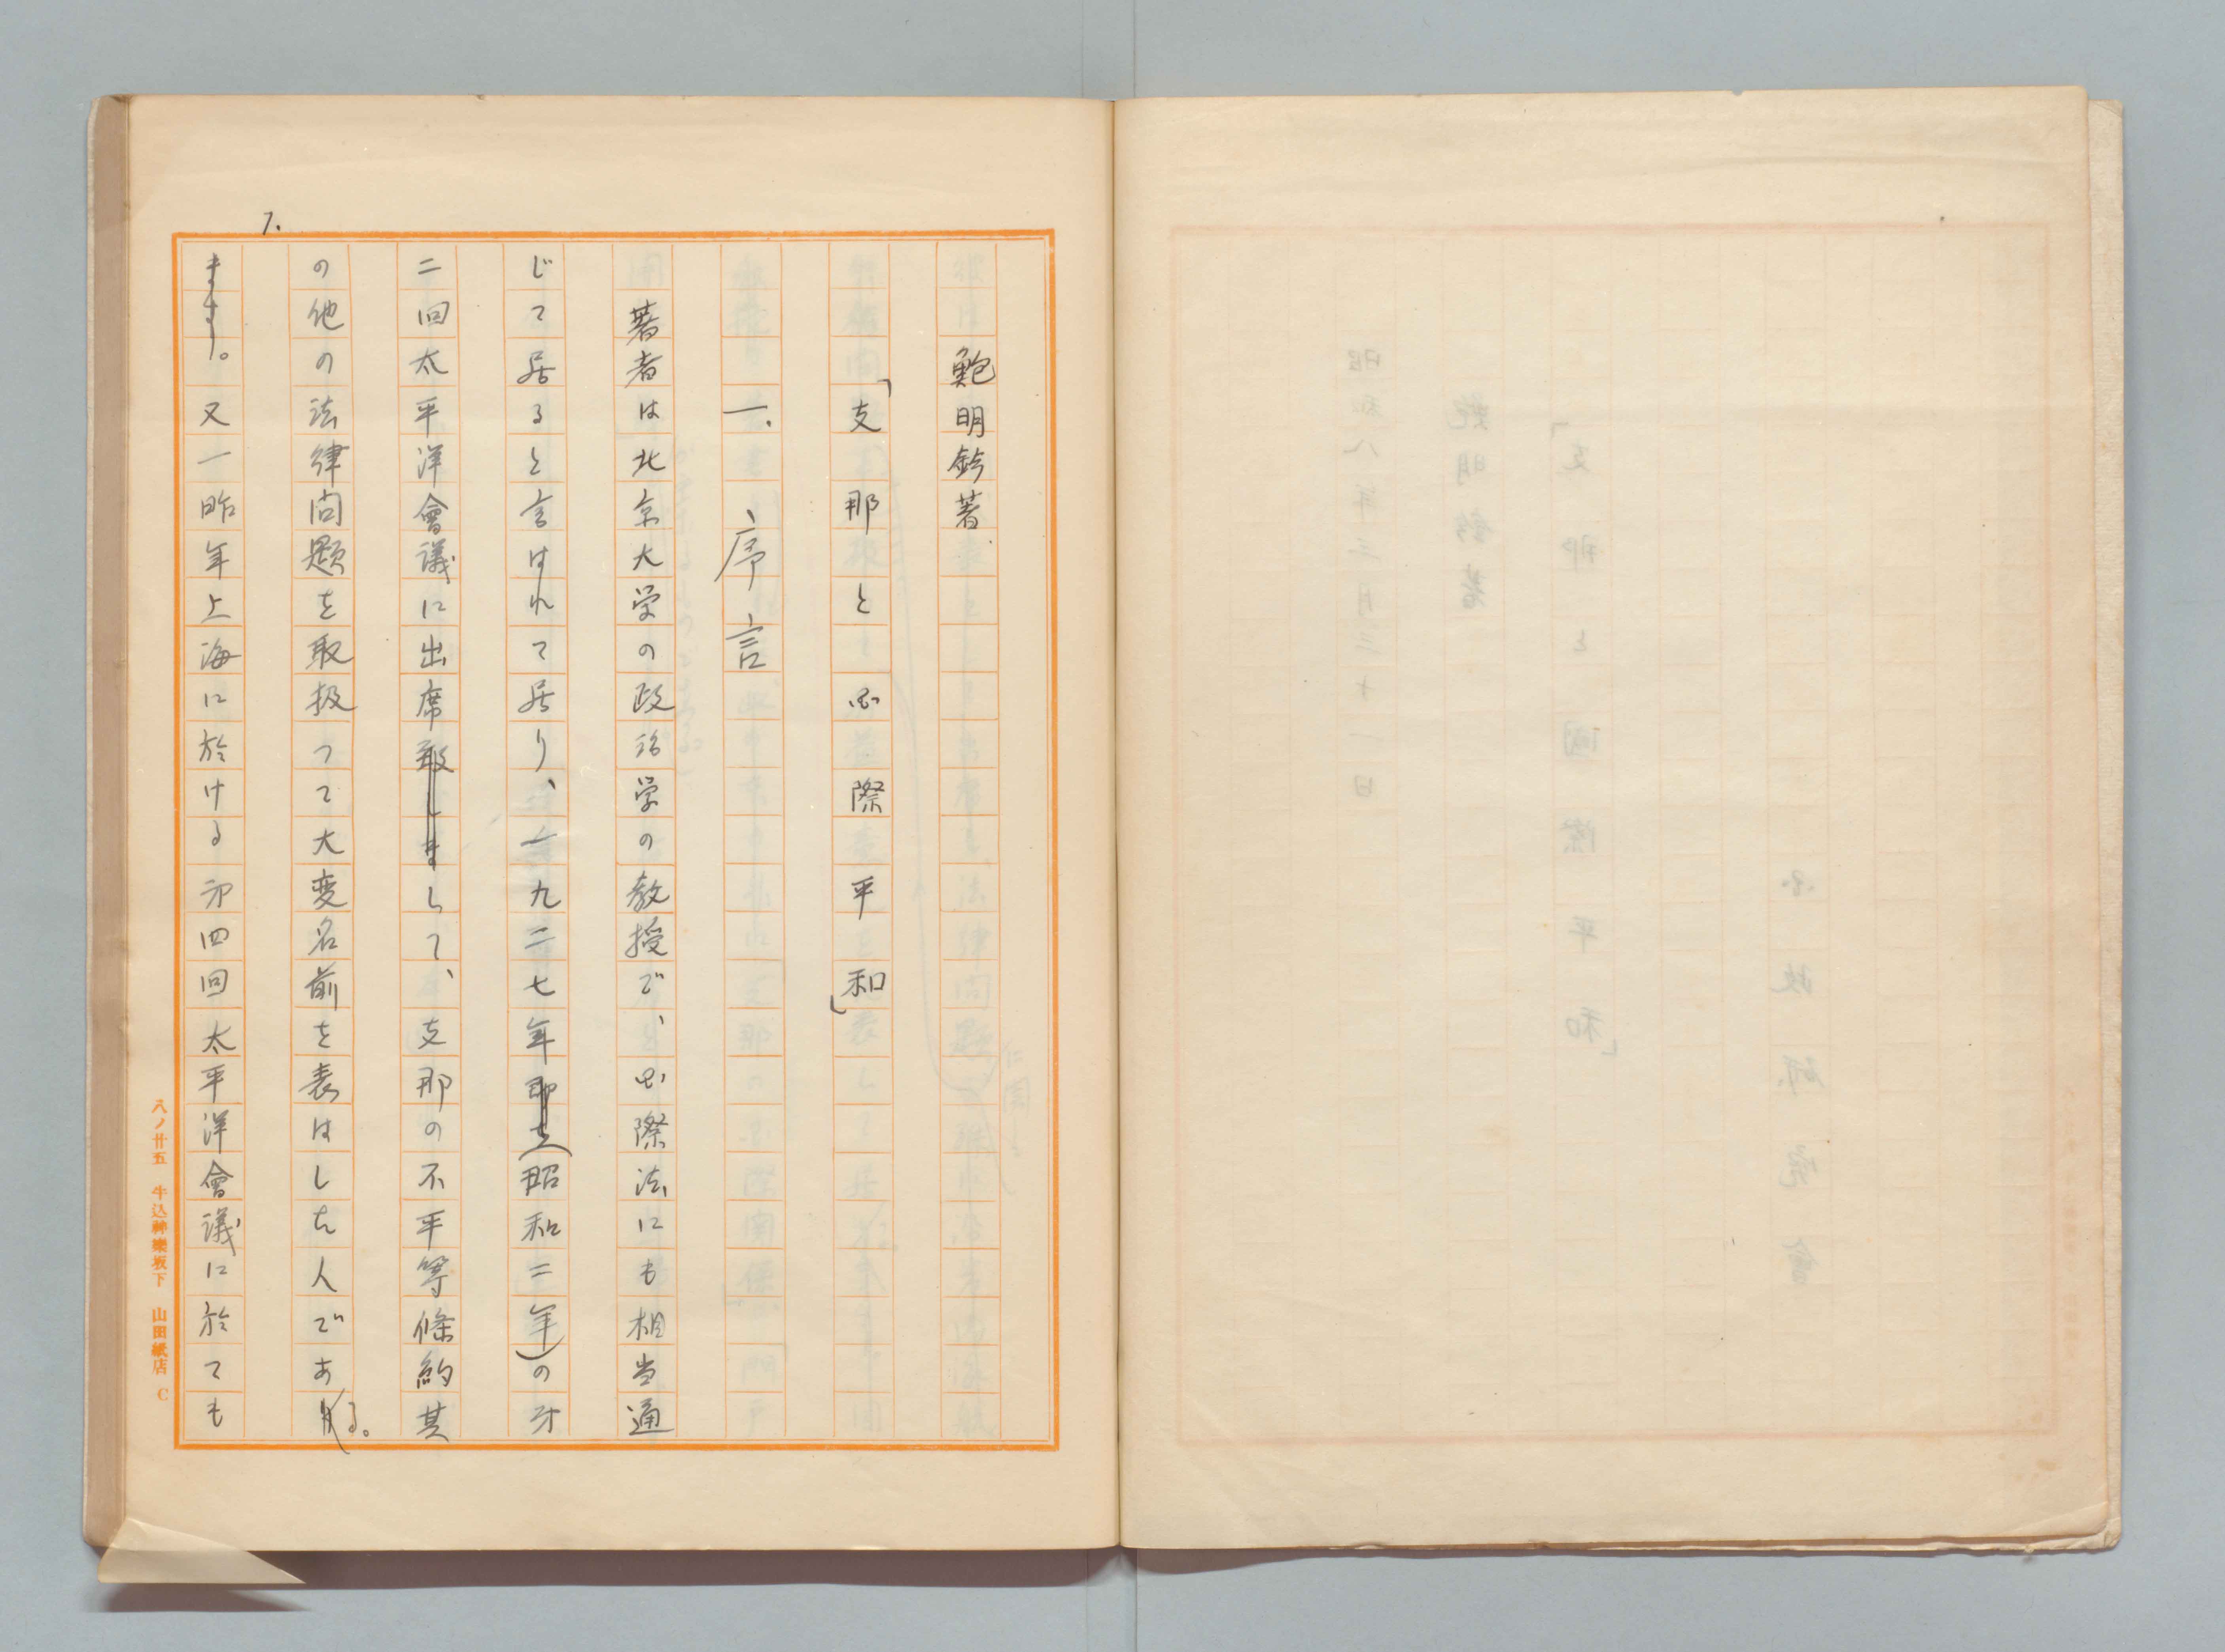 鮑明鈐著
「支那と国際平和」
一、序言
著者は北京大学の政治学の教授で、国際法にも相当通
じて居ると言はれて居り、一九二七年(昭和二年)の才
二回太平洋會議に出席して、支那の不平等條約其
の他の法律問題を取扱つて大変名前を表はした人である。
又一昨年上海に於ける第四回太平洋會議に於ても
1.
八ノ廿五 牛込神樂坂下 山田紙店 C